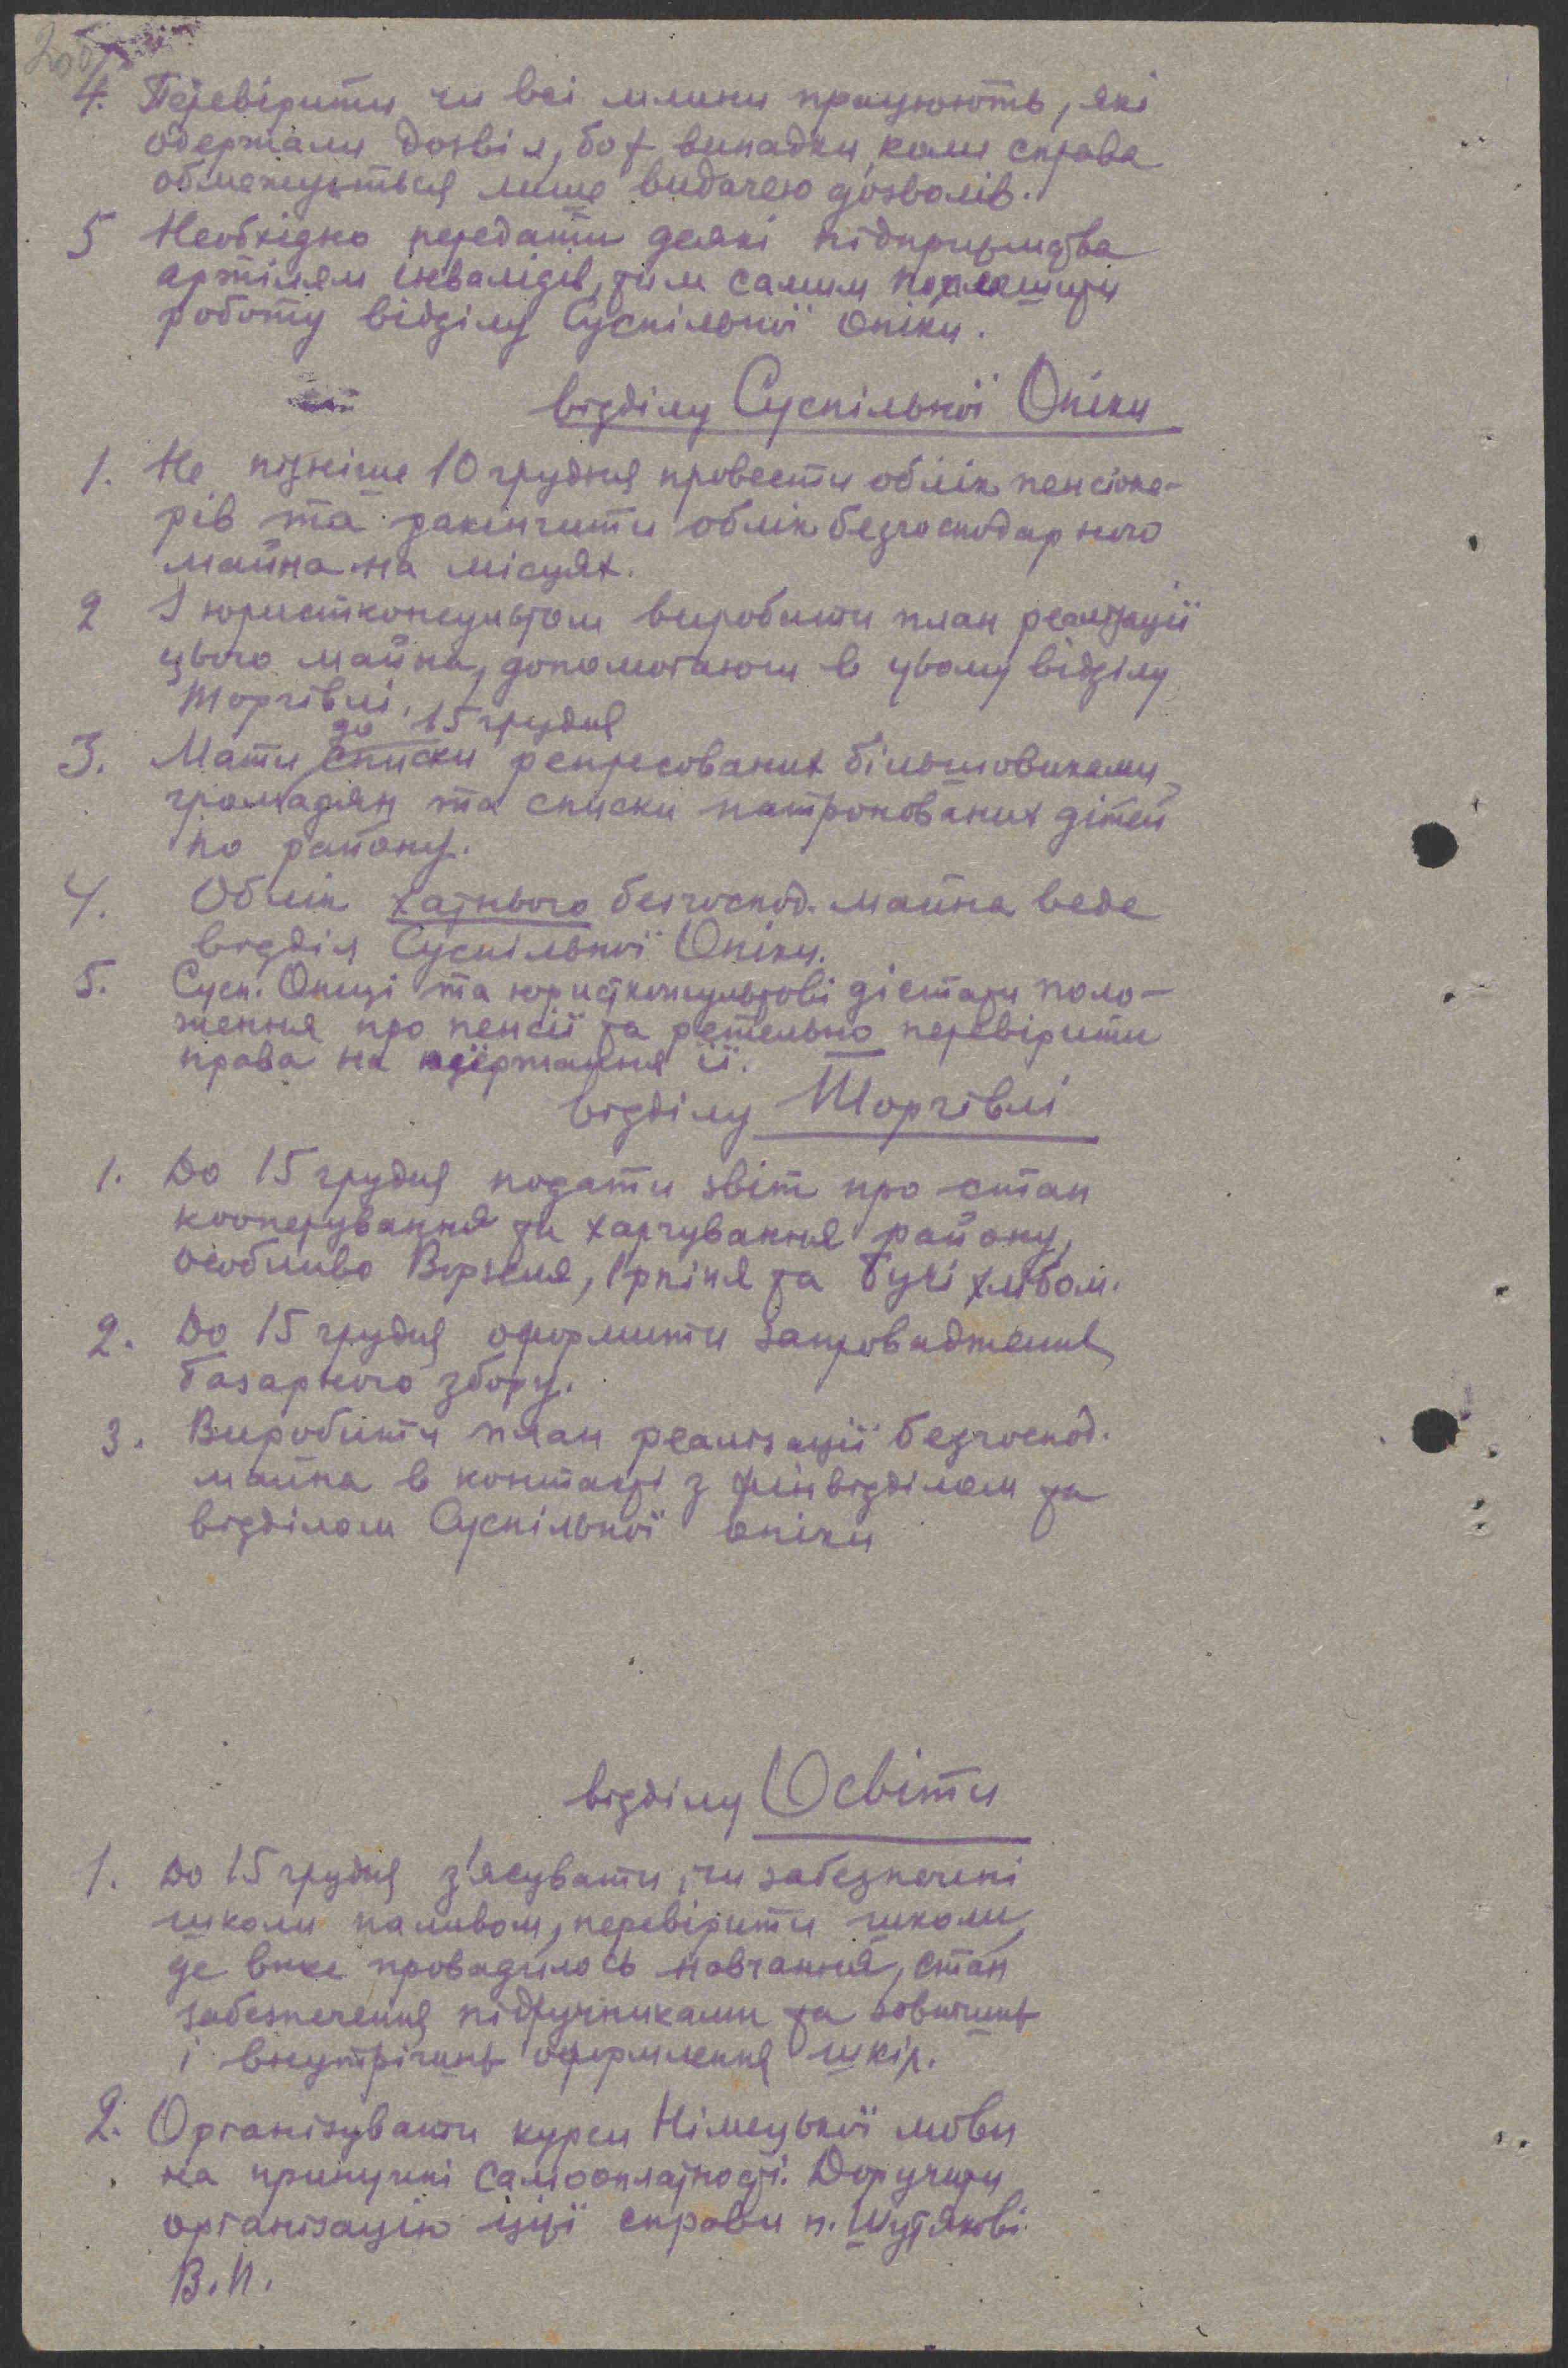 4. Перевірити чи всі млини працюють, які
одержали дозвіл, бо є випадки, коли справа
обмежується лише видачею дозволів.
5 Необхідно передати деякі підприємства
артілям інвалідів, тим самим поліпшити
роботу відділу Суспільної опіки.
відділу Суспільної Опіки
1. Не пізніше 10 грудня провести облік пенсіоне-
рів та закінчити облік безгосподарного
майна на місцях.
2 З юристконсультом виробити план реалізації
цього майна, допомагаючи в цьому відділу
Торгівлі.
до 15 грудня
3. Мати списки репресованих більшовиками
громадян та списки патронованих дітей
по району.
4. Облік хатнього безгоспод. майна веде
відділ Суспільної Опіки.
5. Сусп. Опіці та юристконсультові дістати поло-
ження про пенсії та ретельно перевірити
права на одержання її.
відділу Торгівлі
1. До 15 грудня подати звіт про стан
кооперування та харчування району,
особливо Ворзеля, Ірпіня та Бучі хлібом.
2. До 15 грудня оформити запровадження
базарного збору.
3. Виробити план реалізації безгоспод.
майна в контакті з фінвідділом та
відділом Суспільної опіки
відділу Освіти
1. До 15 грудня з'ясувати, чи забезпечені
школи паливом, перевірити школи,
де вже провадилось навчання, стан
забезпечення підручниками та зовнішнє
і внутрішнє оформлення шкіл.
2. Організувати курси Німецької мови
на принципі самооплатності. Доручити
організацію цієї справи п. Шутякові
В.П.